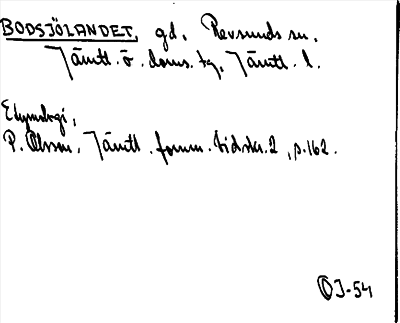 BODSJÖLANDET, gd, Revsunds sn.
Jämtl. ö. doms. tg, Jämtl. l.
Etymologi,
P. Olsson, Jämtl. fornm. tidskr. 2, s. 162.
OJ-54